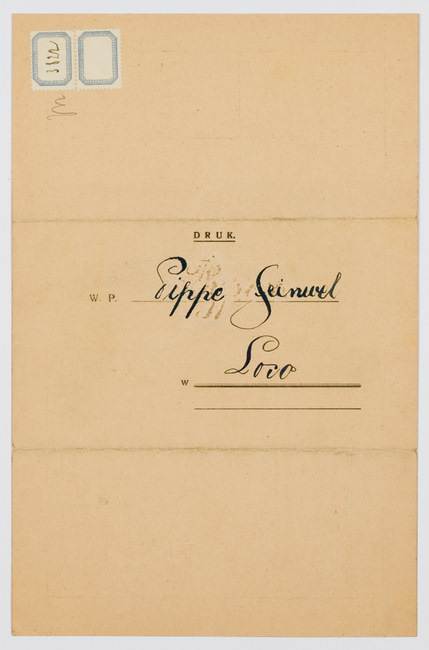 3822
DRUK.
W. P. Pippe Seinwel
w Loco